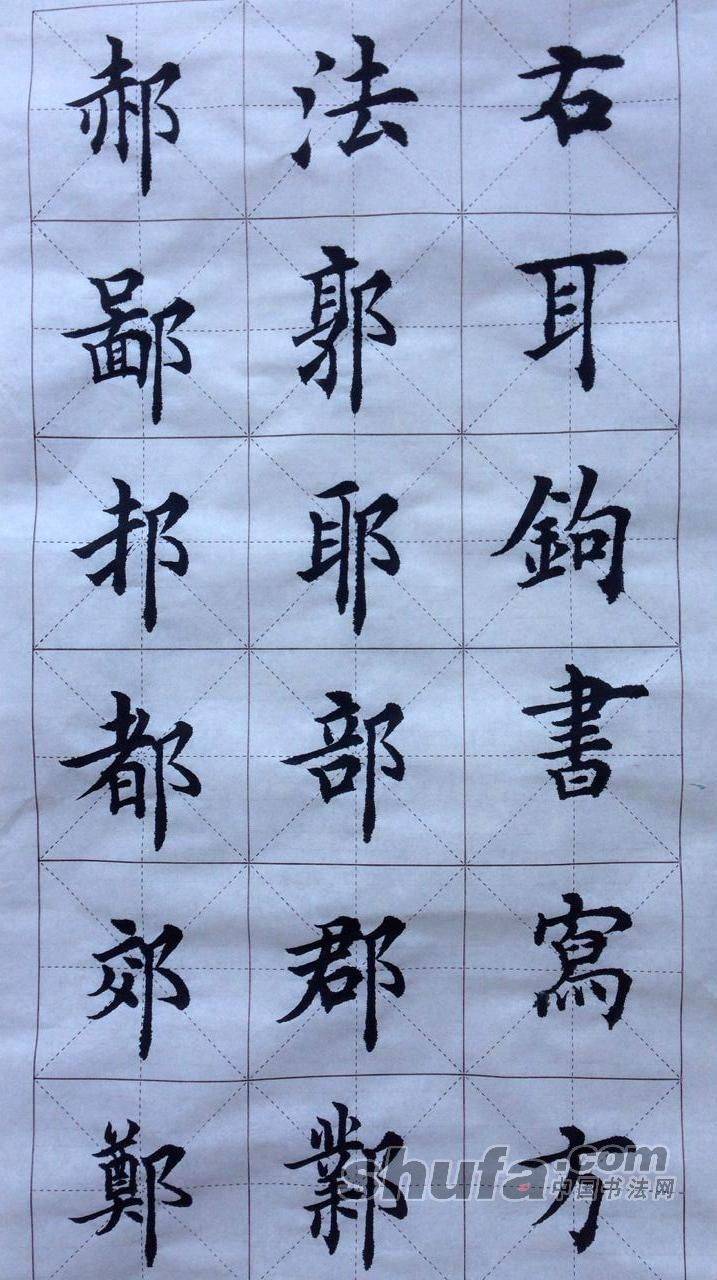 右耳鉤書寫方
法郭耶部郡鄴
郝鄙邦都郊鄭
shufa.com
中国书法网